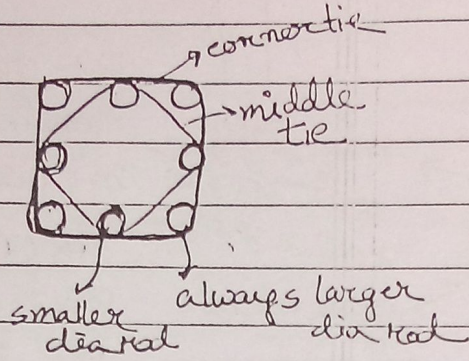 corner tie
middle
tie
smaller
dia rod
always larger
dia rod